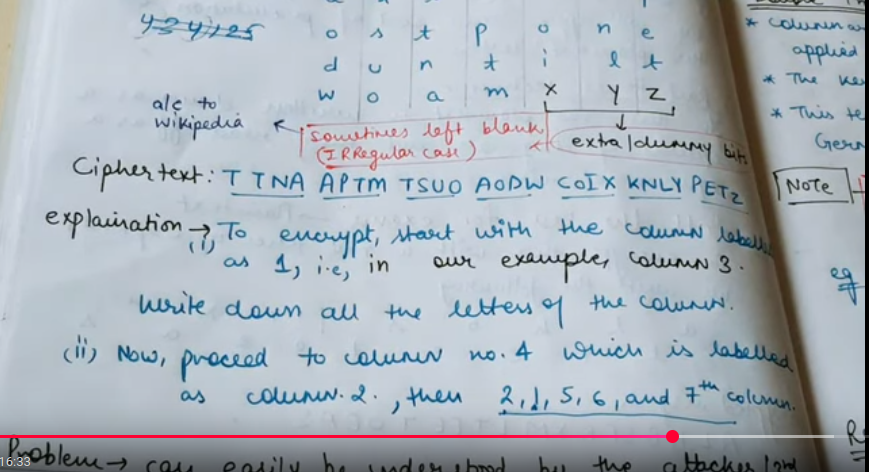 o s t p o n e
d u n t i l t
w o a m x y z
a/c to
wikipedia
sometimes left blank
(IRRegular case)
extra/dummy bits
Ciphertext: TTNA APTM TSUO AODW COIX KNLY PETZ
explaination → (i) To encrypt, start with the column labelled
as 1, i.e, in our example, column 3.
Write down all the letters of the column.
(ii) Now, proceed to column no. 4 which is labelled
as column. 2. , then 2, 1, 5, 6, and 7th column.
Problem → can easily be understood by the attacker
16:33
* column
applied
* The
* This
Germ
Note
eg